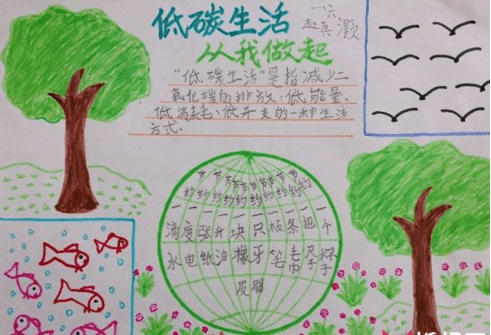 低碳生活
一六
从我做起
"低碳生活"是指减少二
氧化碳的排放,低能量、
低消耗、低开支的一种生活
方式.
节约一滴水
节约一度电
节约一张纸
节约一升油
节约一块橡皮
节约一只牙刷
节约一枝笔
节约一条毛巾
节约一把尺子
节约一个杯子